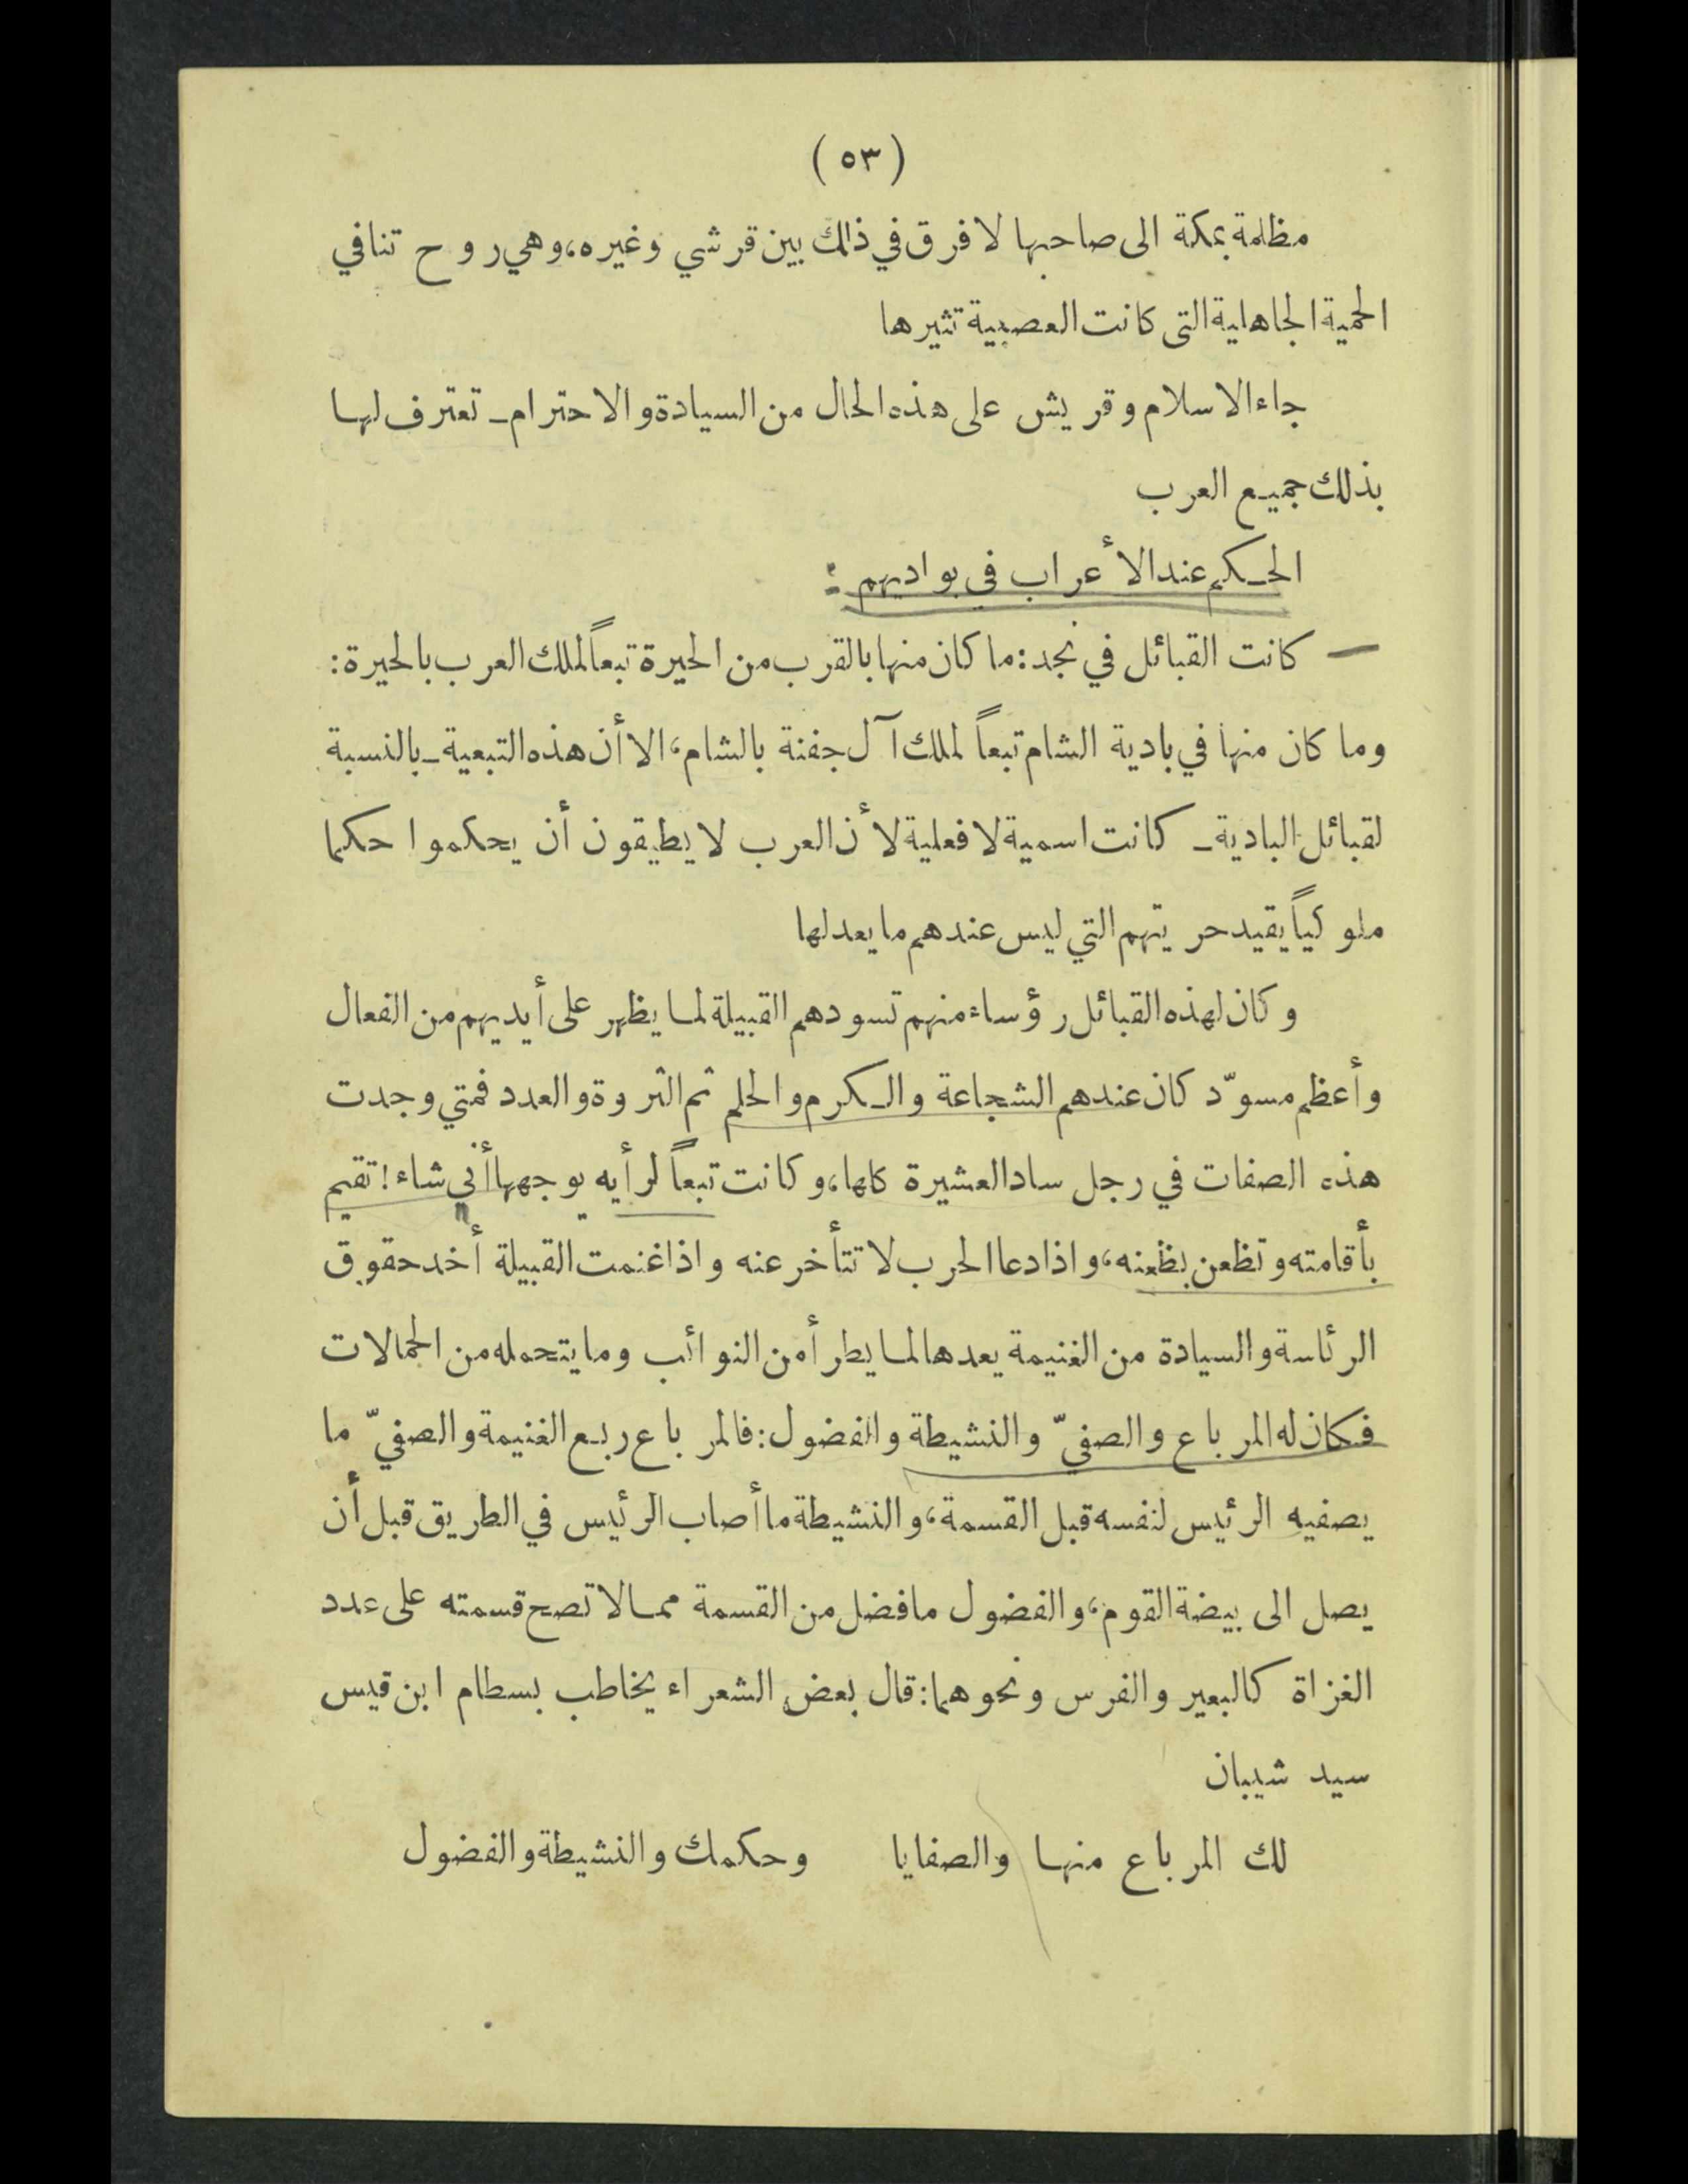 ( ٥٣ )
مظلمة بمكة الى صاحبها لا فرق في ذلك بين قرشي وغيره، وهي روح تنافي
الحمية الجاهلية التى كانت العصبية تثيرها
جاء الاسلام وقريش على هذه الحال من السيادة والاحترام ـ تعترف لها
بذلك جميع العرب
الحكم عند الأعراب في بواديهم :
— كانت القبائل في نجد : ما كان منها بالقرب من الحيرة تبعاً لملك العرب بالحيرة :
وما كان منها في بادية الشام تبعاً لملك آل جفنة بالشام، الا أن هذه التبعية ـ بالنسبة
لقبائل البادية ـ كانت اسمية لا فعلية لأن العرب لا يطيقون أن يحكموا حكما
ملوكياً يقيد حريتهم التي ليس عندهم ما يعدلها
وكان لهذه القبائل رؤساء منهم تسودهم القبيلة لما يظهر على أيديهم من الفعال
وأعظم مسوّد كان عندهم الشجاعة والكرم والحلم ثم الثروة والعدد فمتي وجدت
هذه الصفات في رجل ساد العشيرة كلها، وكانت تبعاً لرأيه يوجهها أني شاء ! تقيم
بأقامته وتظعن بظعنه، واذا دعا الحرب لا تتأخر عنه واذا غنمت القبيلة أخد حقوق
الرئاسة والسيادة من الغنيمة يعدها لما يطرأ من النوائب وما يتحمله من الحمالات
فكان له المرباع والصفيّ والنشيطة والفضول : فالمرباع ربع الغنيمة والصفيّ ما
يصفيه الرئيس لنفسه قبل القسمة، والنشيطة ما أصاب الرئيس في الطريق قبل أن
يصل الى بيضة القوم، والفضول ما فضل من القسمة مما لا تصح قسمته على عدد
الغزاة كالبعير والفرس ونحوهما : قال بعض الشعراء يخاطب بسطام ابن قيس
سيد شيبان
لك المرباع منها والصفايا وحكمك والنشيطة والفضول